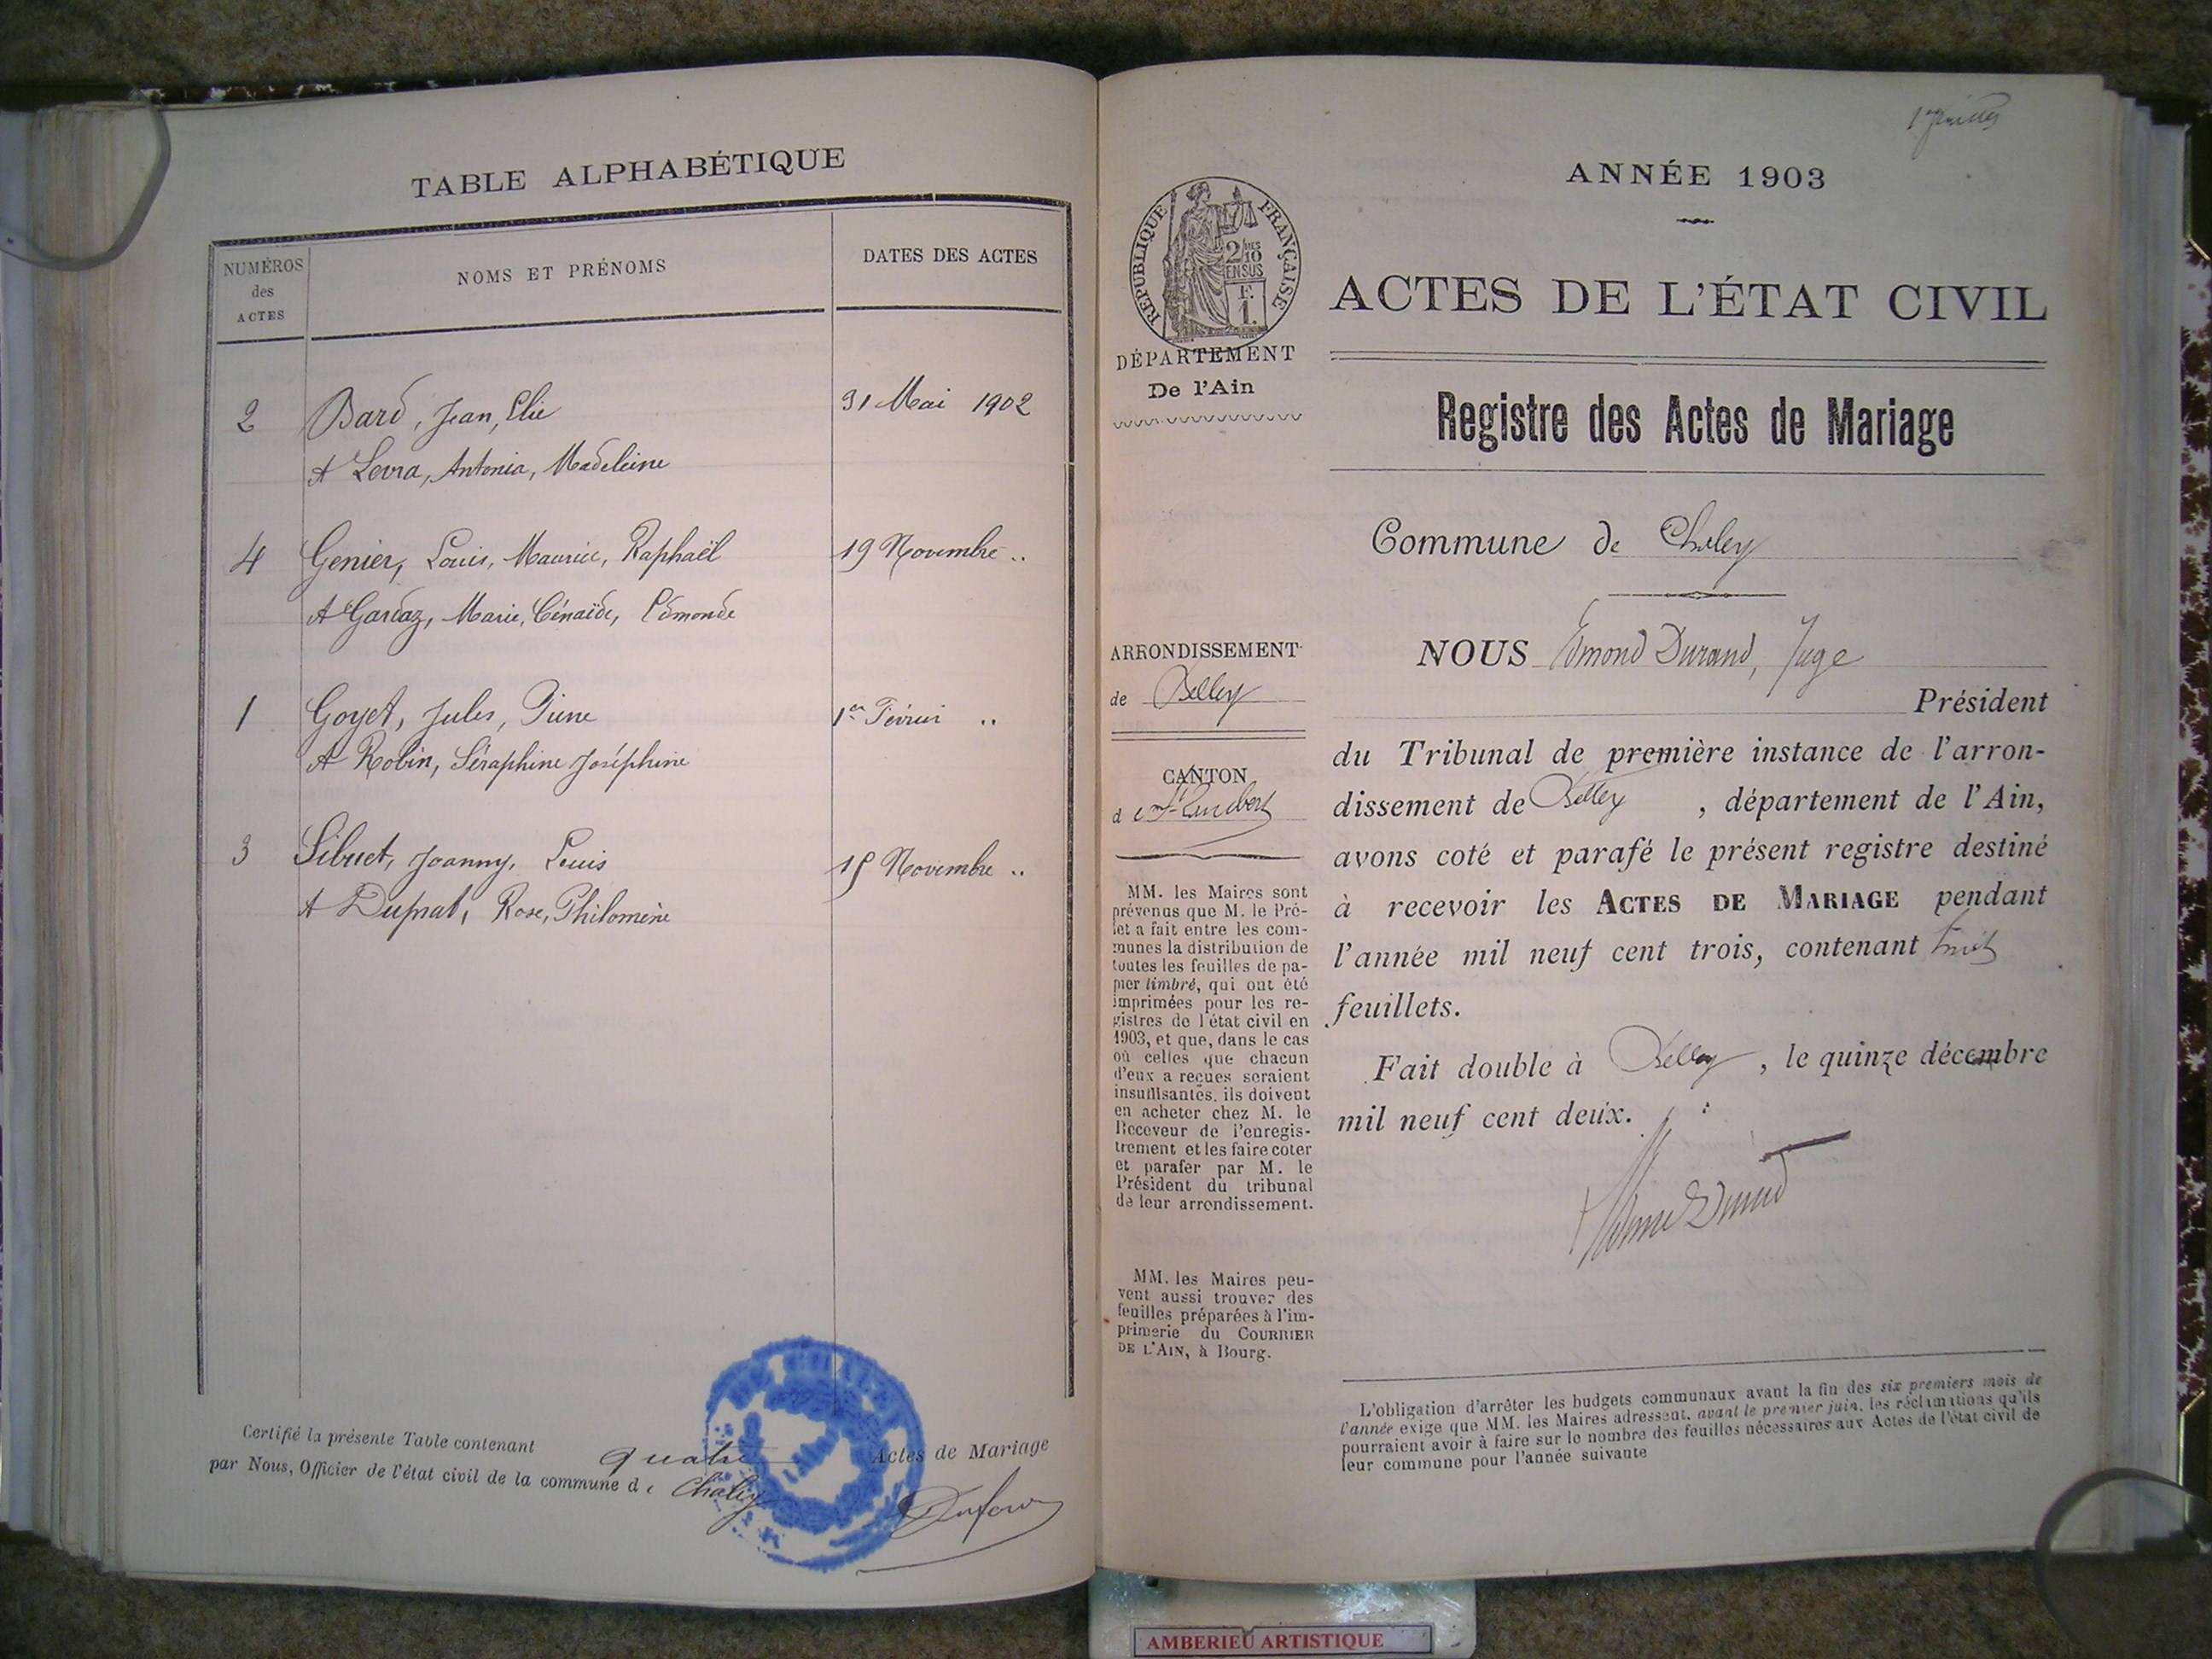 TABLE ALPHABÉTIQUE
NUMÉROS
des
ACTES
NOMS ET PRÉNOMS
DATES DES ACTES
2 Bard, Jean, Elie 31 Mai 1902
et Levra, Antonia, Madeleine
4 Genier, Louis, Maurice, Raphaël 19 Novembre ..
et Gardaz, Marie, Cénaïde, Edmonde
1 Goyet, Jules, Pierre 1er Février ..
et Robin, Séraphine Joséphine
3 Sibuet, Joanny, Louis 15 Novembre ..
et Duprat, Rose, Philomène
Certifié la présente Table contenant quatre Actes de Mariage
par Nous, Officier de l'état civil de la commune de Chaley
Dufour
ANNÉE 1903
RÉPUBLIQUE FRANÇAISE
2/10MES
EN SUS
F.
1.
ACTES DE L'ÉTAT CIVIL
DÉPARTEMENT
De l'Ain
Registre des Actes de Mariage
Commune de Chaley
ARRONDISSEMENT
de Belley
CANTON
de St Rambert
MM. les Maires sont
prévenus que M. le Pré-
fet a fait entre les com-
munes la distribution de
toutes les feuilles de pa-
pier timbré, qui ont été
imprimées pour les re-
gistres de l'état civil en
1903, et que, dans le cas
où celles que chacun
d'eux a reçues seraient
insuffisantes, ils doivent
en acheter chez M. le
Receveur de l'enregis-
trement et les faire coter
et parafer par M. le
Président du tribunal
de leur arrondissement.
MM. les Maires peu-
vent aussi trouver des
feuilles préparées à l'im-
primerie du COURRIER
DE L'AIN, à Bourg.
NOUS Edmond Durand, Juge
Président
du Tribunal de première instance de l'arron-
dissement de Belley, département de l'Ain,
avons coté et parafé le présent registre destiné
à recevoir les ACTES DE MARIAGE pendant
l'année mil neuf cent trois, contenant huit
feuillets.
Fait double à Belley, le quinze décembre
mil neuf cent deux.
L'obligation d'arrêter les budgets communaux avant la fin des six premiers mois de
l'année exige que MM. les Maires adressent, avant le premier juin, les réclamations qu'ils
pourraient avoir à faire sur le nombre des feuilles nécessaires aux Actes de l'état civil de
leur commune pour l'année suivante
AMBERIEU ARTISTIQUE